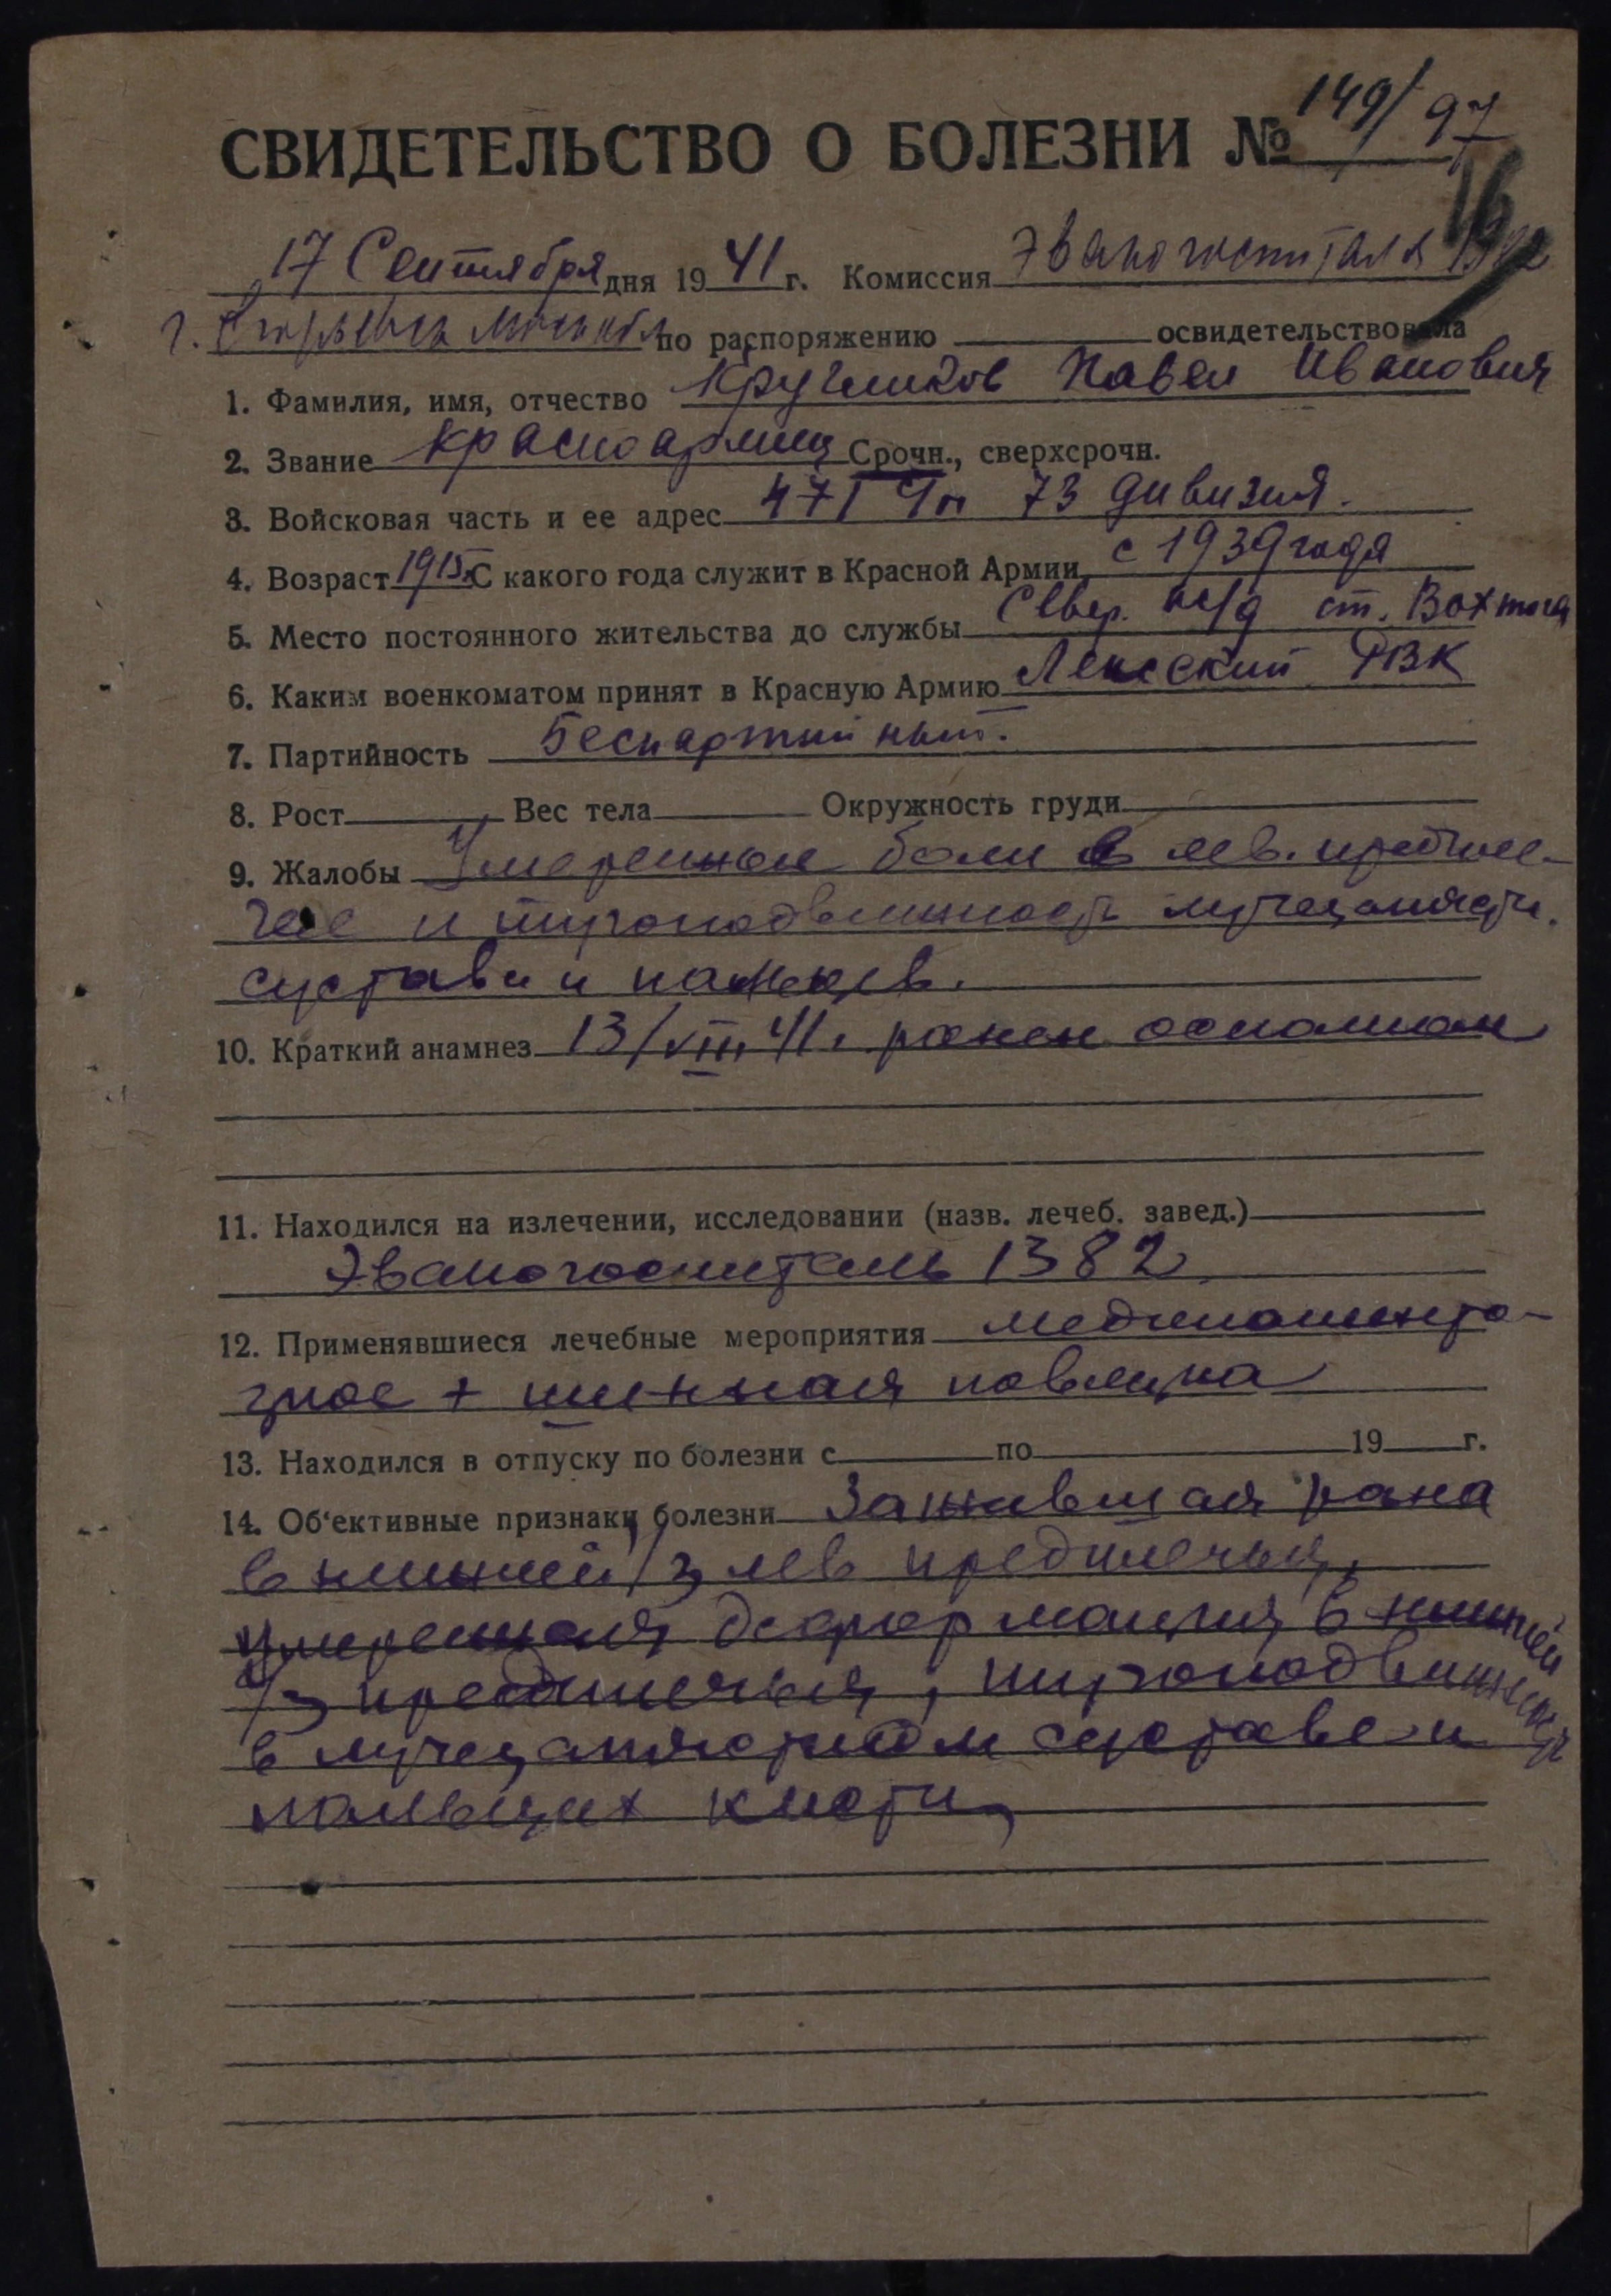 СВИДЕТЕЛЬСТВО О БОЛЕЗНИ № 149/97
16
17 Сентября дня 1941 г. Комиссия Эвакогоспиталя 1382
г. Егорьевск Моск обл по распоряжению освидетельствовала
1. Фамилия, имя, отчество Кругликов Павел Иванович
2. Звание красноармеец Срочн., сверхсрочн.
3. Войсковая часть и ее адрес 471 73 дивизия.
4. Возраст 1915 С какого года служит в Красной Армии с 1939 года
5. Место постоянного жительства до службы Север. ж/д ст. Вохтога
6. Каким военкоматом принят в Красную Армию РВК
7. Партийность Беспартийный.
8. Рост Вес тела Окружность груди
9. Жалобы Умеренные боли в лев. предпле-
чье и тугоподвижность лучезапястн.
сустава и пальцев.
10. Краткий анамнез 13/VIII 41 г. ранен осколком
11. Находился на излечении, исследовании (назв. лечеб. завед.)
Эвакогоспиталь 1382
12. Применявшиеся лечебные мероприятия медикаменто-
зное + шинная повязка
13. Находился в отпуску по болезни с по 19 г.
14. Об'ективные признаки болезни Зажившая рана
в нижней 1/3 лев предплечья,
умеренная деформация в нижней
1/3 предплечья, тугоподвижность
в лучезапястном суставе и
пальцах кисти